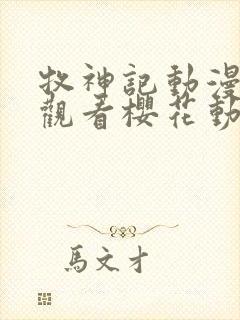 牧神記動漫
觀看櫻花動
馬文才